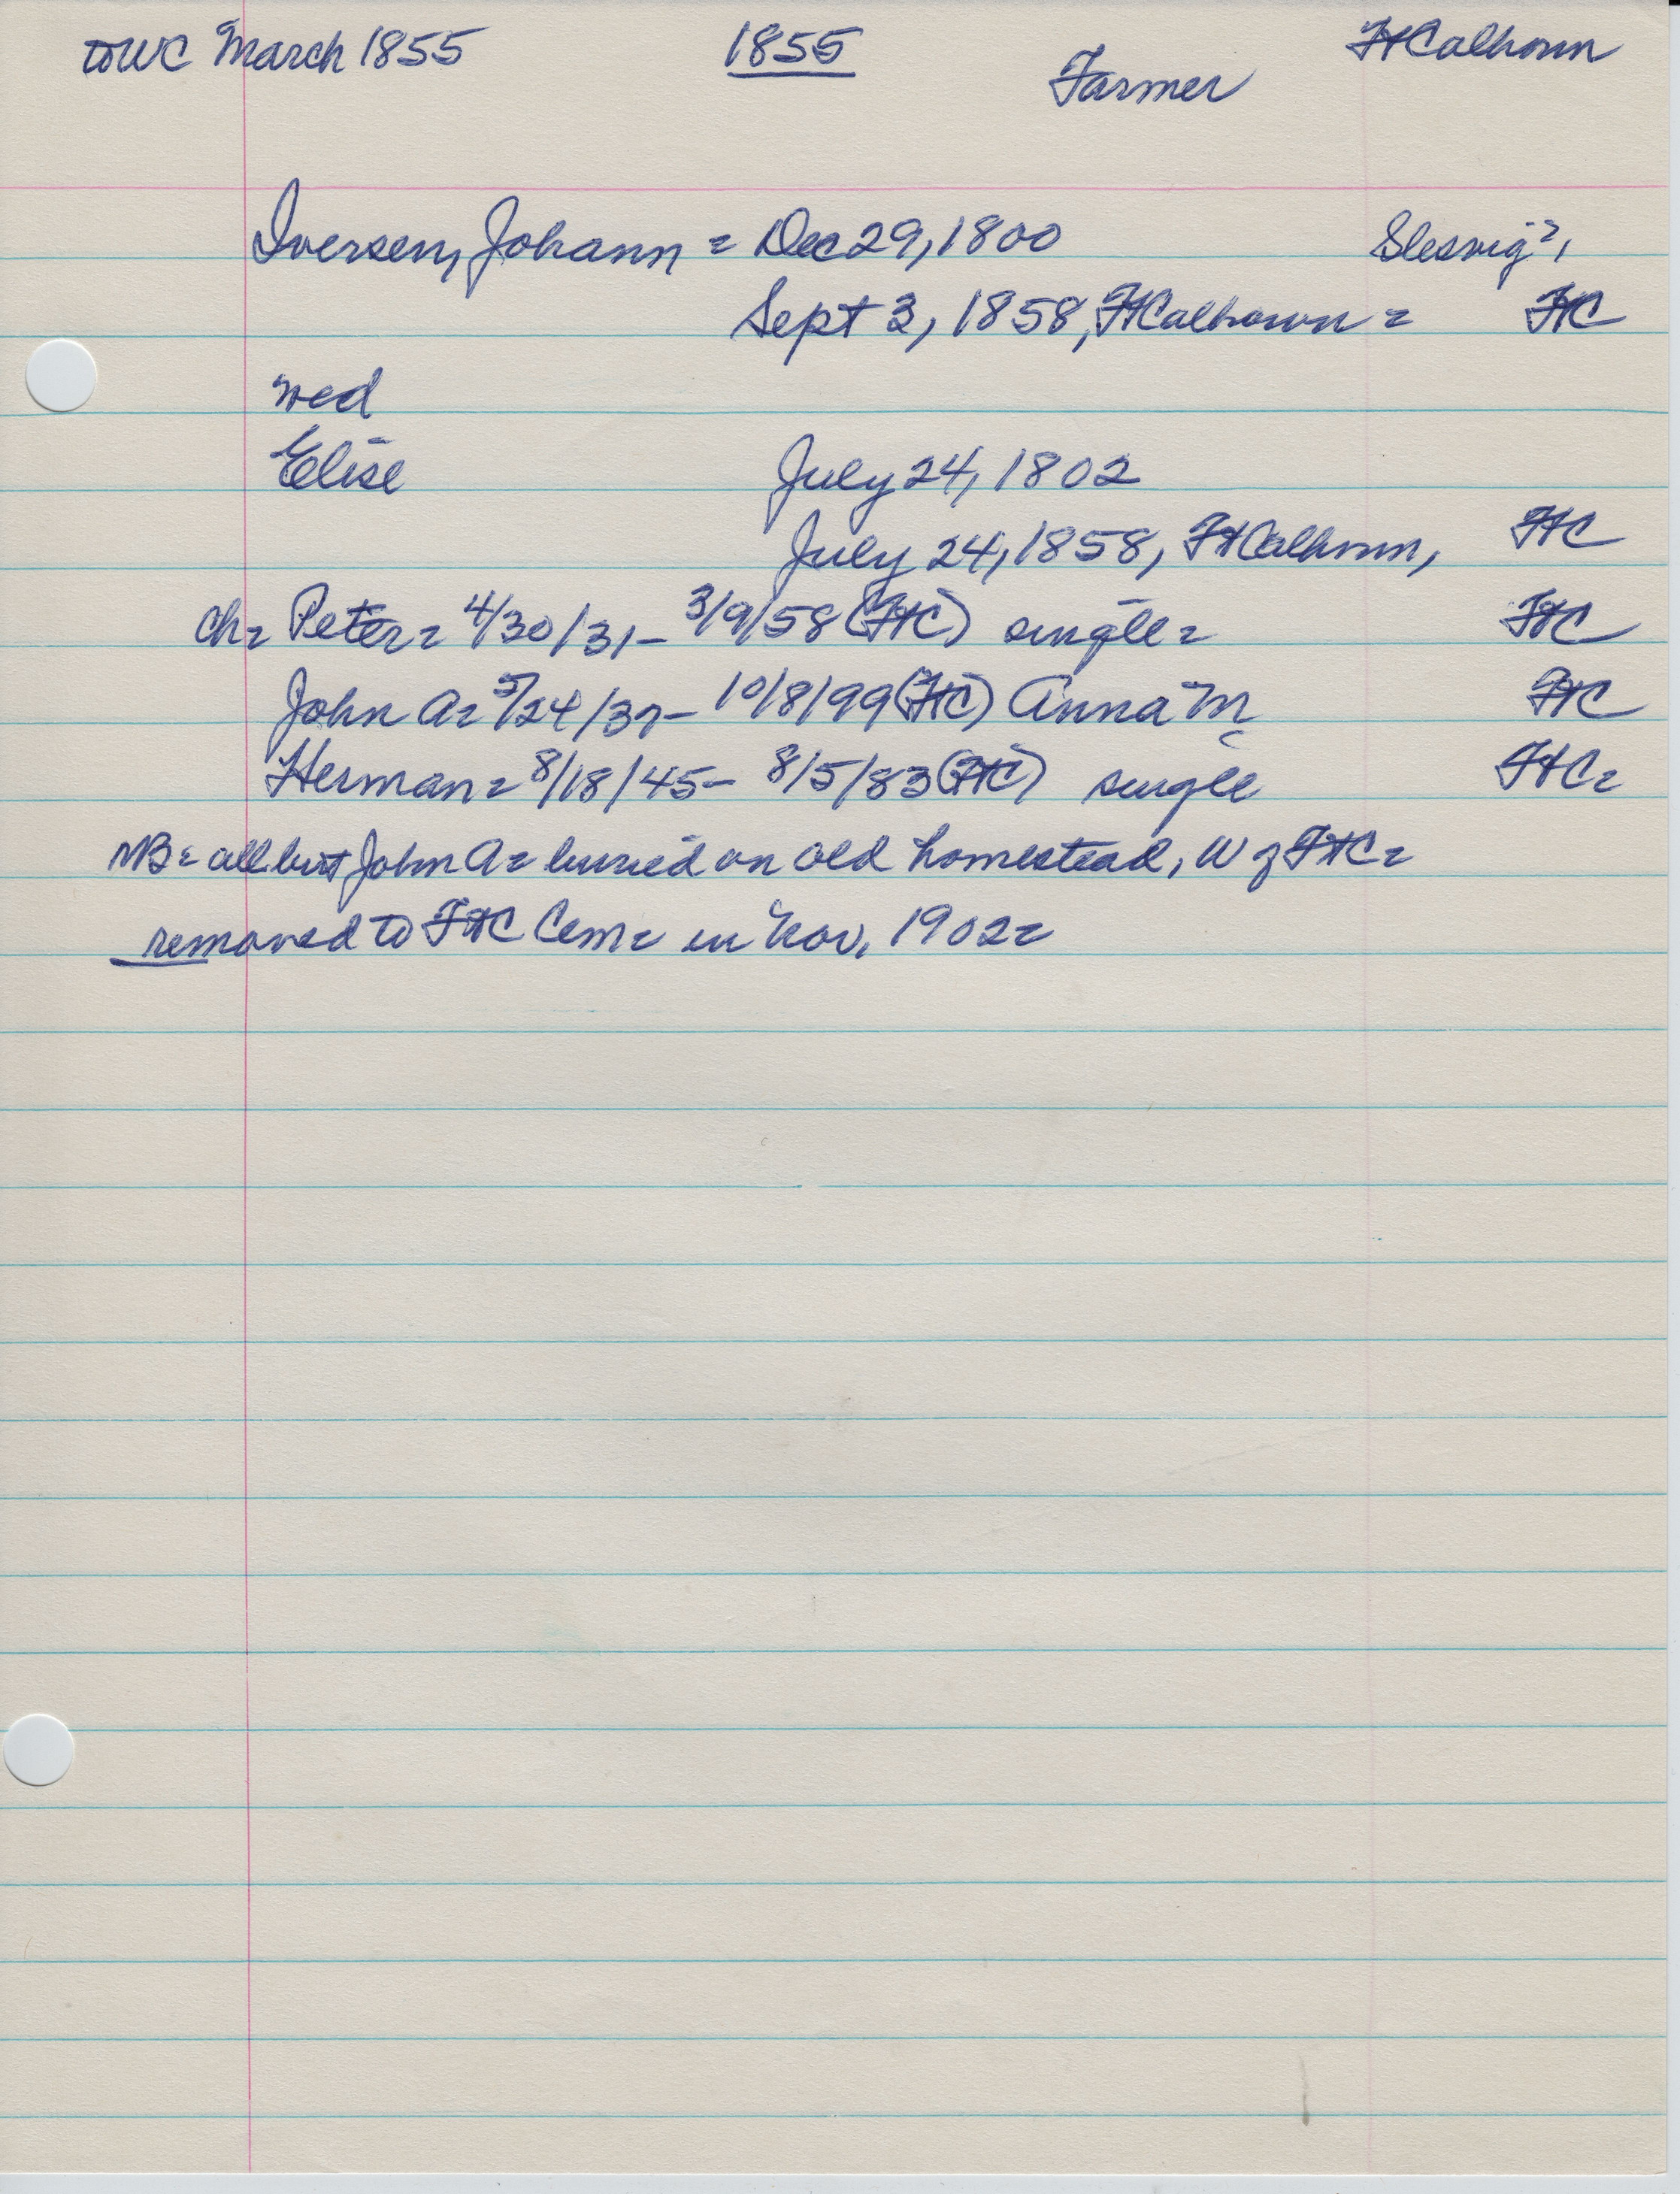 to WC March 1855 1855 Farmer FtCalhoun
Iversen, Johann = Dec 29, 1800 Slesvig?,
Sept 3, 1858, FtCalhoun = FtC
wed
Elise July 24, 1802
July 24, 1858, FtCalhoun, FtC
ch= Peter= 4/30/31- 3/9/58 (FtC) single= FtC
John A= 5/24/37- 10/8/99 (FtC) Anna M FtC
Herman= 8/18/45- 8/5/83 (FtC) single FtC=
NB= all but John A= buried on old homestead, W of FtC=
removed to FtC Cem= in Nov, 1902=